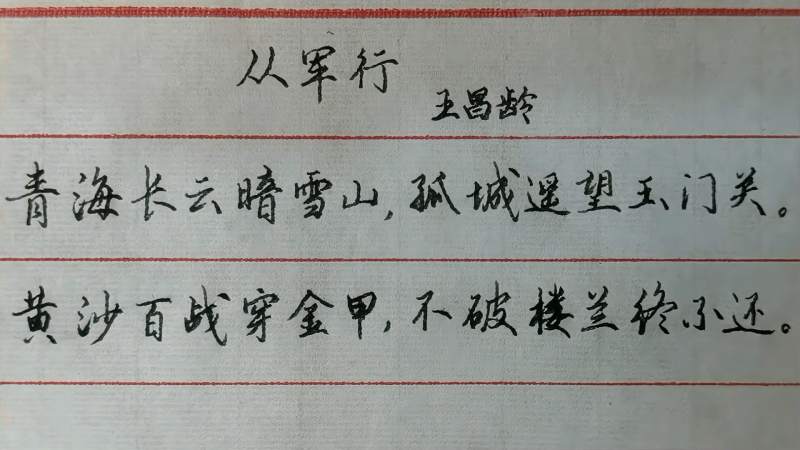 从军行
王昌龄
青海长云暗雪山,孤城遥望玉门关。
黄沙百战穿金甲,不破楼兰终不还。